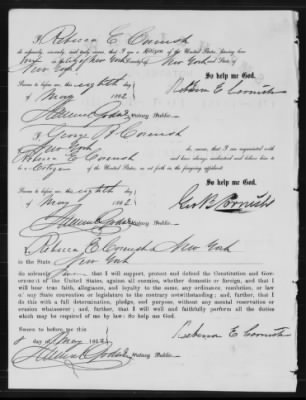 I Rebecca E Cornish
do solemnly, sincerely, and truly swear, that I am a citizen of the United States, having been
born in City of New York County of New York and State of
New York
So help me God.
Sworn to before me this eighth day
of May 1882
Rebecca E Cornish
Notary Public.
I George B Cornish
New York
do swear, that I am acquainted with
Rebecca E Cornish and have always understood and believe him to
be a Citizen of the United States, as set forth in the foregoing affidavit
So help me God.
Sworn to before me this eighth day
of May 1882
Geo B Cornish
Notary Public.
I, Rebecca E Cornish New York
in the State New York
do solemnly that I will support, protect and defend the Constitution and Gov-
ernment of the United States, against all enemies, whether domestic or foreign, and that
I will bear true faith, allegiance, and loyalty to the same, any ordinance, resolution, or law
of any State convention or legislature to the contrary notwithstanding; and further, that I
do this with a full determination, pledge, and purpose, without any mental reservation or
evasion whatsoever; and further, that I will well and faithfully perform all the duties
which may be required of me by law: So help me God.
Sworn to before me this
8 day of May 1882
Rebecca E Cornish
Notary Public.